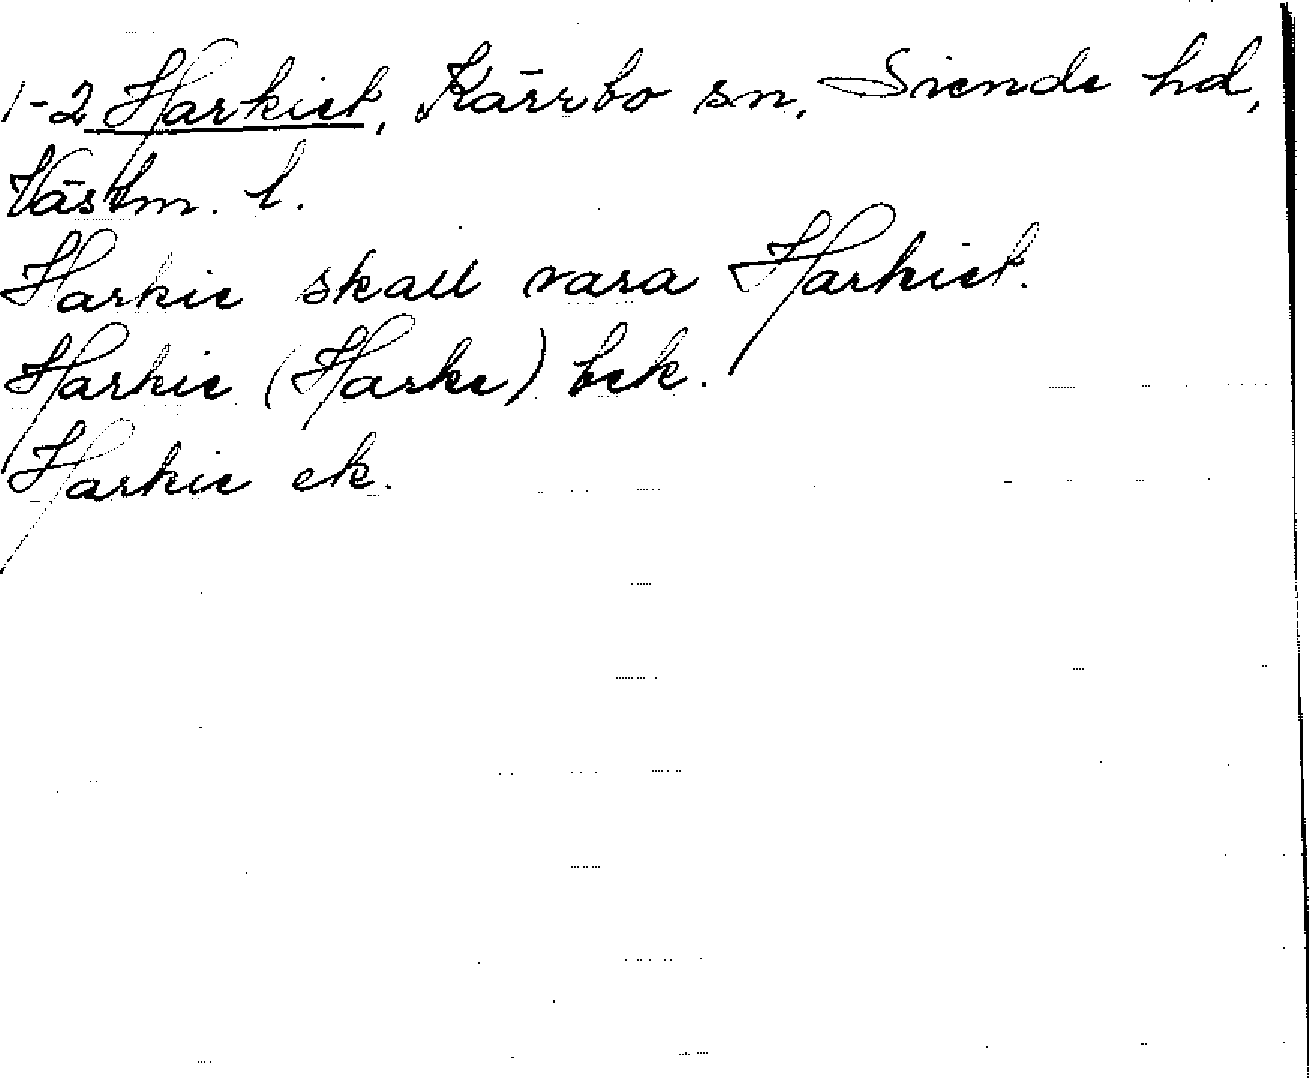 1-2 Harkiet, Kärrbo sn, Siende hd,
Västm. l.
Harkie skall vara Harkiet.
Harkie (Harke) bek.
Harkie ek.